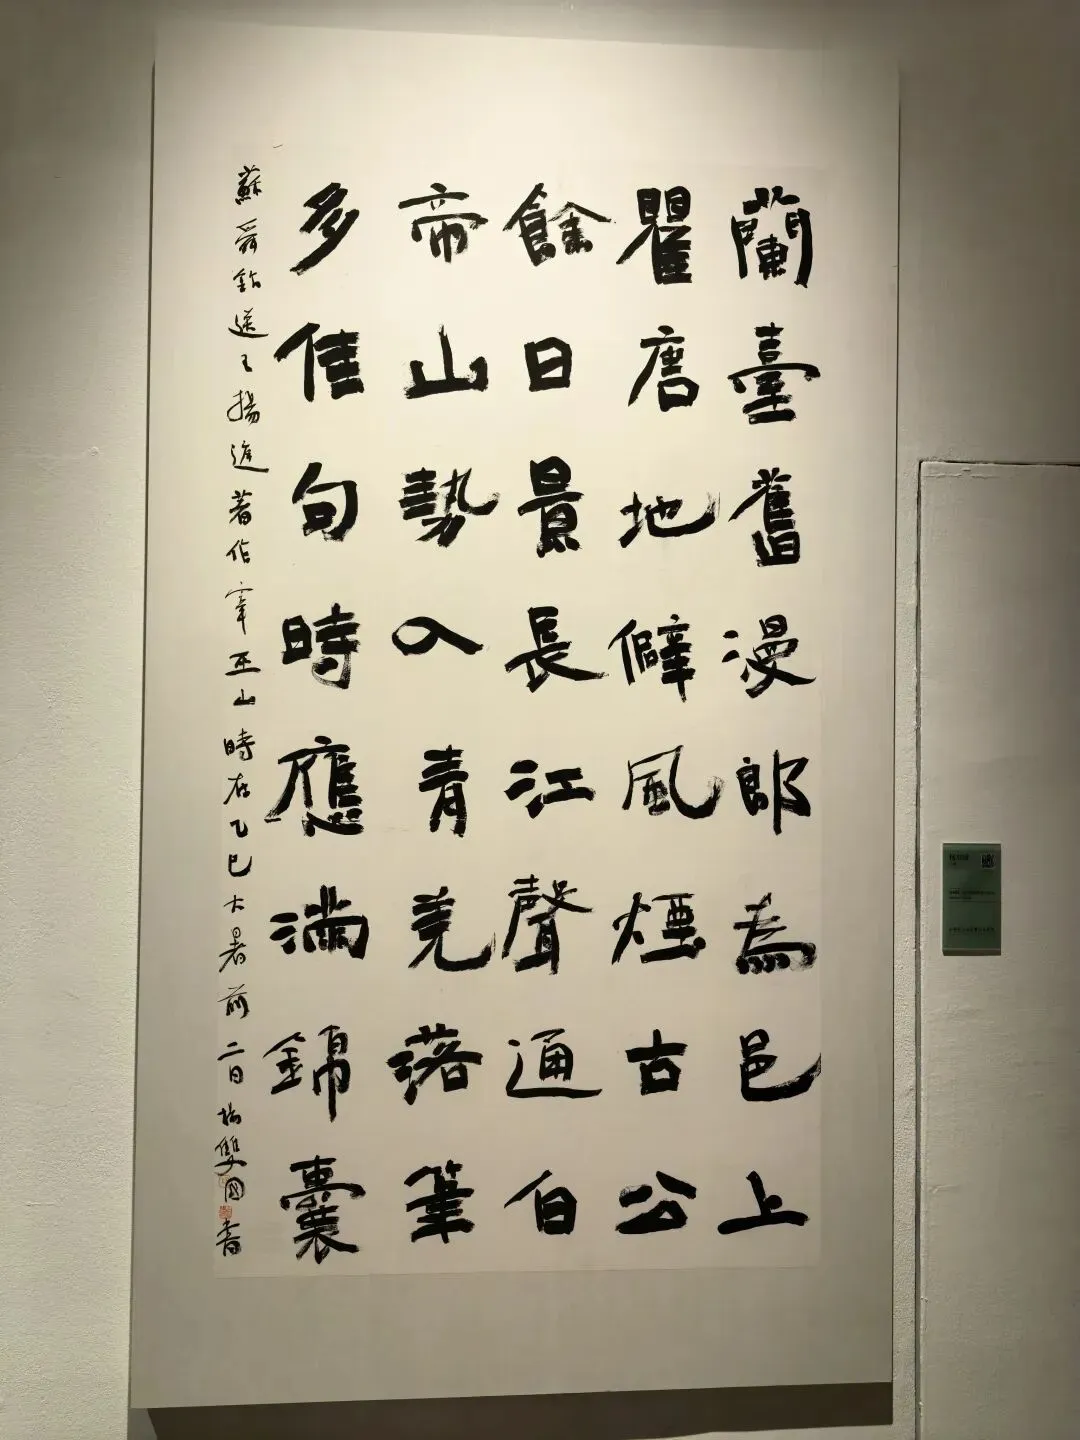 蘭臺舊漫郎為邑上
瞿唐地僻風煙古公
餘日景長江聲通白
帝山勢入青羌落筆
多佳句時應滿錦囊
蘇舜欽送王揚進著作宰巫山時在乙巳大暑前二日楊雙國書